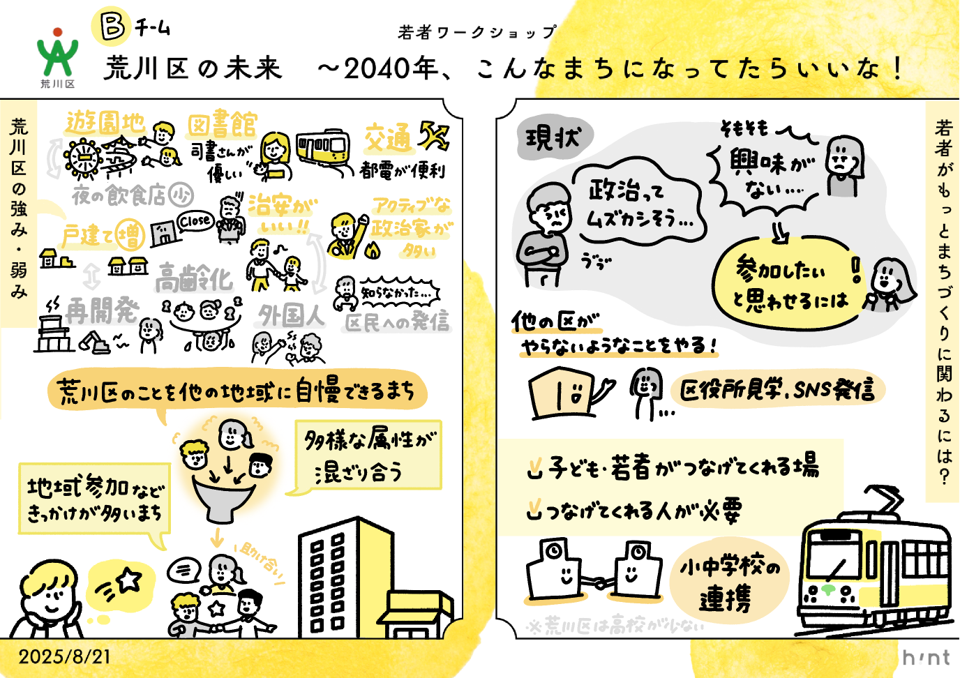 Bチーム
荒川区
若者ワークショップ
荒川区の未来 ～2040年、こんなまちになってたらいいな！
荒川区の強み・弱み
遊園地
図書館
司書さんが
優しい
交通
都電が便利
夜の飲食店少
Close
治安が
いい!!
アクティブな
政治家が
多い
戸建て増
高齢化
再開発
外国人
知らなかった…
区民への発信
荒川区のことを他の地域に自慢できるまち
多様な属性が
混ざり合う
地域参加など
きっかけが多いまち
助け合い！
若者がもっとまちづくりに関わるには？
現状
政治って
ムズカシそう…
ゔゔ
そもそも
興味が
ない…
参加したい
と思わせるには
!
他の区が
やらないようなことをやる！
区役所見学、SNS発信
子ども・若者がつなげてくれる場
つなげてくれる人が必要
小中学校の
連携
※荒川区は高校が少ない
2025/8/21
hint